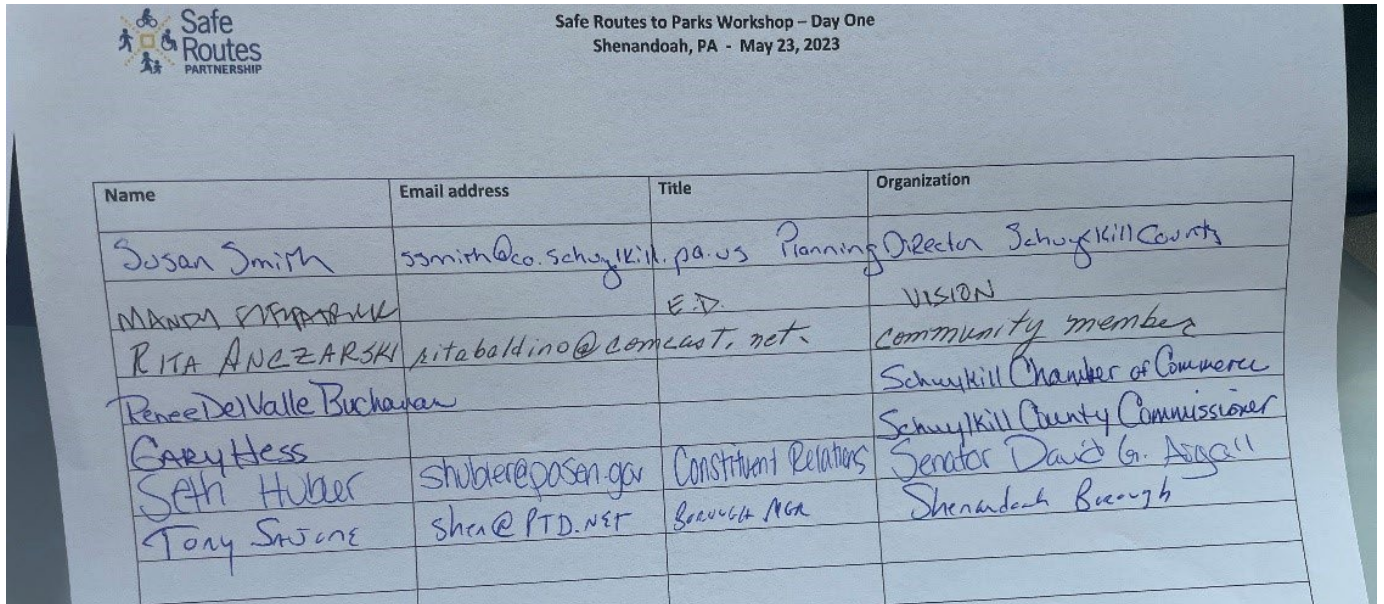 Safe
Routes
PARTNERSHIP
Safe Routes to Parks Workshop – Day One
Shenandoah, PA - May 23, 2023
Name Email address Title Organization
Susan Smith ssmith@co.schuylkill.pa.us Planning Director Schuylkill County
MANDY E.D. VISION
RITA ANCZARSKI ritabaldino@comcast.net community member
Renee DelValle Buchanan Schuylkill Chamber of Commerce
GARY Hess Schuylkill County Commissioner
Seth Hubler Constituent Relations Senator David G. Argall
Tony shen@PTD.NET BOROUGH MGR Shenandoah Borough